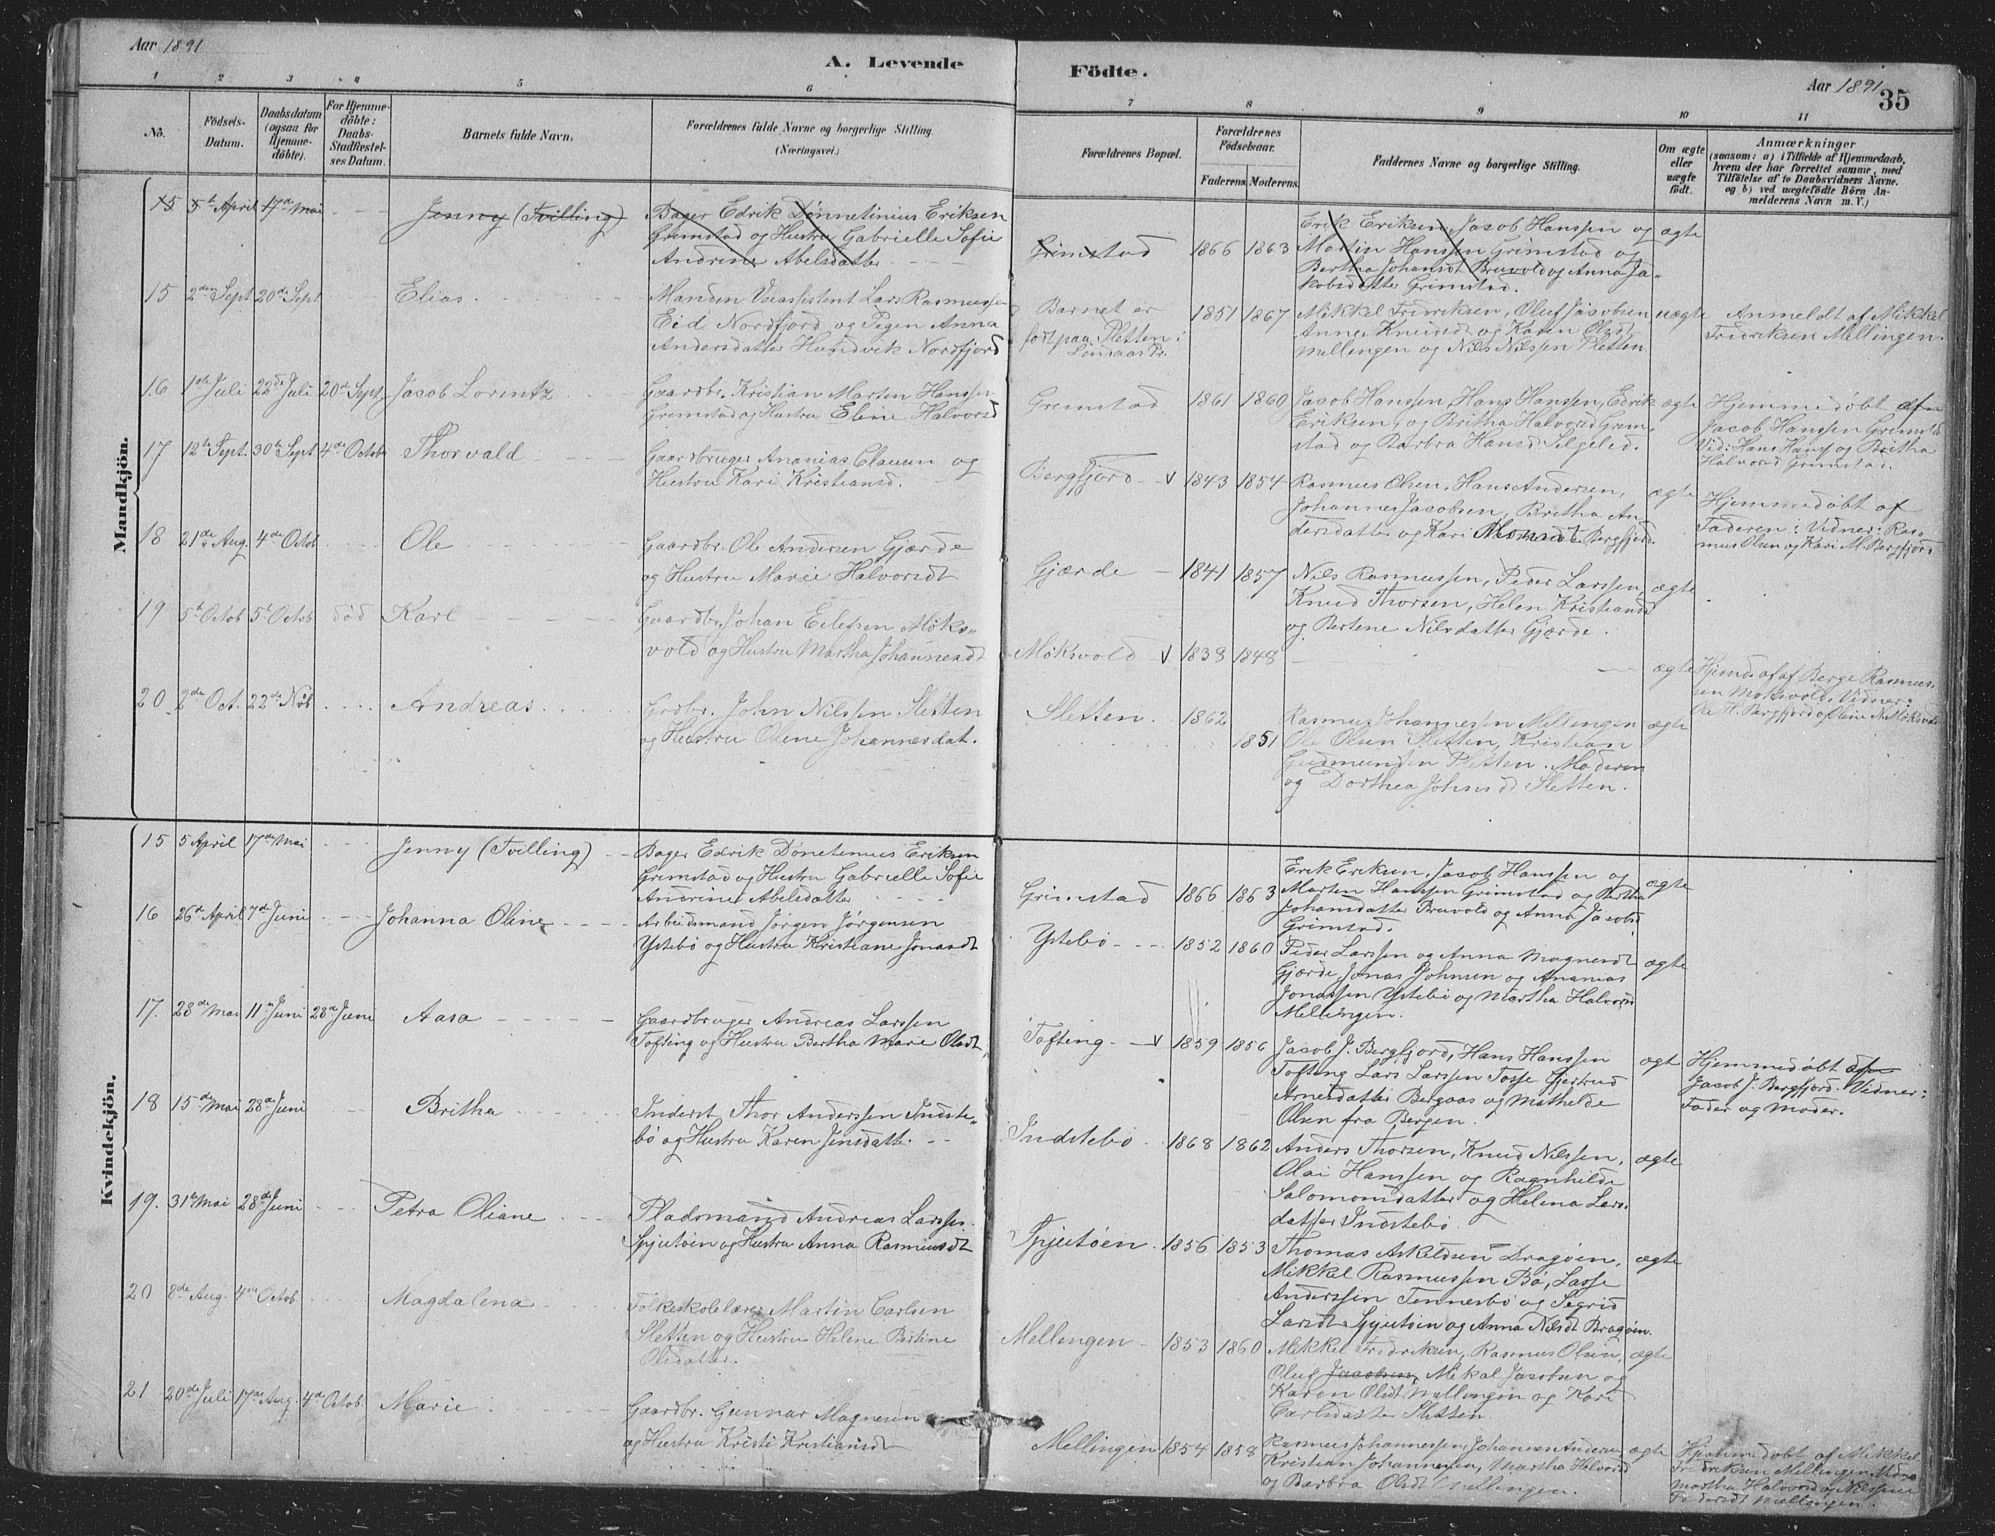 Aar 1891
A. Levende
Födte.
Aar 1891
35
1 2 3 4 5 6 7 8 9 10 11
No.
Födsels-
Datum.
Daabsdatum
(ogsaa for
Hjemme-
döbte).
For Hjemme-
döbte:
Daabs-
Stadfæstel-
ses Datum.
Barnets fulde Navn.
Forældrenes fulde Navne og borgerlige Stilling.
(Næringsvei.)
Forældrenes Bopæl.
Forældrenes
Födselsaar.
Faderens. Moderens.
Faddernes Navne og borgerlige Stilling.
Om ægte
eller
uægte
födt.
Anmærkninger
(saasom: a) i Tilfælde af Hjemmedaab,
hvem der har forrettet samme, med
Tilföielse af to Daabsvidners Navne.
og b) ved uægtefödte Börn An-
melderens Navn m. V.)
Mandkjön.
15 5te April 17de Mai Jenny (Tvilling)
Bager Edrik Dønnetinius Eriksen
Grimstad og Hustru Gabrielle Sofie
Andrine Abelsdatter
Grimstad 1866 1863
Erik Eriksen, Jacob Hanssen og
Martin Hanssen Grimstad og
Bertha Johansdt Bruvold og Anna Ja-
kobsdatter Grimstad.
ægte
15 2den Sept 20de Sept Elias
Manden Lars Rasmussen
Eid Nordfjord og Pigen Anna
Andersdatter Hundvik Nordfjord
Barnet er
født paa Sletten i
1851 1867
Mikkel Fridriksen, Oluf Jacobsen
Anne Knudsdt og Karen Olsdt
Mellingen og Nils Nilssen Sletten
uægte
Anmeldt af Mikkel
Fridriksen Mellingen.
16 1ste Juli 22de Juli 20de Sept Jacob Lorentz
Gaardbr. Kristian Marten Hanssen
Grimstad og Hustru Eline Halvorsd
Grimstad 1861 1860
Jacob Hanssen, Hans Hanssen, Edrik
Eriksen, og Britha Halvorsd Grim-
stad og Barbra Hansd
ægte
Hjemmedøbt af
Jacob Hanssen Grimstad
Vid: Hans Hanss og Britha
Halvorsd Grimstad.
17 12te Sept. 30te Sept 4de Octob Thorvald
Gaardbruger Ananias Clausen og
Hustru Kari Kristiansd.
Bergfjord 1843 1854
Rasmus Olsen, Hans Andersen,
Johannes Jacobsen, Britha An-
dersdatter og Kari Bergfjord.
ægte
Hjemmedøbt af
Faderen: Vidner: Ras-
mus Olsen og Kari M. Bergfjord
18 21de Aug. 4de Octob Ole
Gaardbr. Ole Andersen Gjærde
og Hustru Marie Halvorsdt
Gjærde 1841 1857
Nils Rasmussen, Peder Larssen,
Knud Thorsen, Helen Kristiansd
og Bertene Nilsdatter Gjærde.
ægte
19 5te Octob 5te Octob død Karl
Gaardbr. Johan Eilefsen Møks-
vold og Hustru Martha Johannesdt
Møksvold 1838 1848
ægte
Hjemd. af Berge Rasmus-
sen Møksvold. Vidner:
20 2den Oct. 22de Nob Andreas
Grdbr. John Nilssen Sletten
og Hustru Oline Johannesdat.
Sletten. 1862 1851
Rasmus Johannessen Mellingen
Ole Olsen Sletten, Kristian
Gudmundsen Sletten. Moderen
og Dorthea Johnsd Sletten.
ægte
Kvindekjön.
15 5 April 17de Mai Jenny (Tvilling)
Bager Edrik Dønetenius Eriksen
Grimstad og Hustru Gabrielle Sofie
Andrine Abelsdatter
Grimstad 1866 1863
Erik Eriksen, Jacob Hanssen og
Marten Hanssen Grimstad og Bertha
Johansdatter Bruvold og Anna Jacobs
Grimstad.
ægte
16 26de April 7de Juni Johanna Oline
Arbeidsmand Jørgen Jørgensen
Ystebø og Hustru Kristiane Jonasdt
Ystebø 1852 1860
Peder Larssen og Anna Magnesdt
Gjærde, Jonas Johnsen og Ananias
Jonassen Ystebø og Martha Halvorsd
Mellingen.
ægte
17. 28de Mai 11te Juni 28de Juni Aasa
Gaardbruger Andreas Larssen
Tofting og Hustru Bertha Marie Olsdt
Tofting 1859 1856
Jacob J. Bergfjord, Hans Hanssen
Tofting Lars Larssen Tosse Gjertrud
Arnesdatter Bergaas og Mathilde
Olsen fra Bergen.
ægt
Hjemmedøbt af
Jacob J. Bergfjord. Vidner:
Fader og Moder.
18 15de Mai 28de Juni Britha
Inderst Thor Anderssen Indste-
bø og Hustru Karen Jensdatt.
Indstebø 1868 1862
Anders Thorsen, Knud Nilssen,
Olai Hanssen og Ragnhilde
Salomonsdatter og Helena Lars-
datter Indstebø.
ægte
19. 31te Mai 28de Juni Petra Oliane
Pladsmand Andreas Larssen
Spjutøen og Hustru Anna Rasmusdt
Spjutøen 1856 1853
Thomas Askildsen Dragøen,
Mikkel Rasmussen Bø, Lasse
Anderssen Tennesbø og Segrid
Larsdt Spjutøen og Anna Nilsdt Dragøen.
ægte
20 8de Aug. 4de Octob. Magdalena
Folkeskolelærer Martin Carlsen
Sletten og Hustru Helene Bertine
Olsdatter.
Mellengen 1853 1860
Mikkel Fridriksen, Rasmus Olsen,
Oluf Jacobsen, Mikal Jacobsen og
Karen Olsdt Mellingen og Kari
Carlsdatte Sletten.
ægte
21 20de Juli 17de Aug. 4de Octob. Marie
Gaardbr. Gunnar Magnesen
og Hustru Kristi Kristiansdt
Mellingen 1854 1858
Rasmus Johannessen, Johannes Andersen
Kristian Johannesen, Martha Halvorsd
og Barbra Olsdt Mellingen.
ægte
Hjemmedøbt af Mikkel
Fridriksen Mellingen
Martha Halvorsd og
Mellingen.